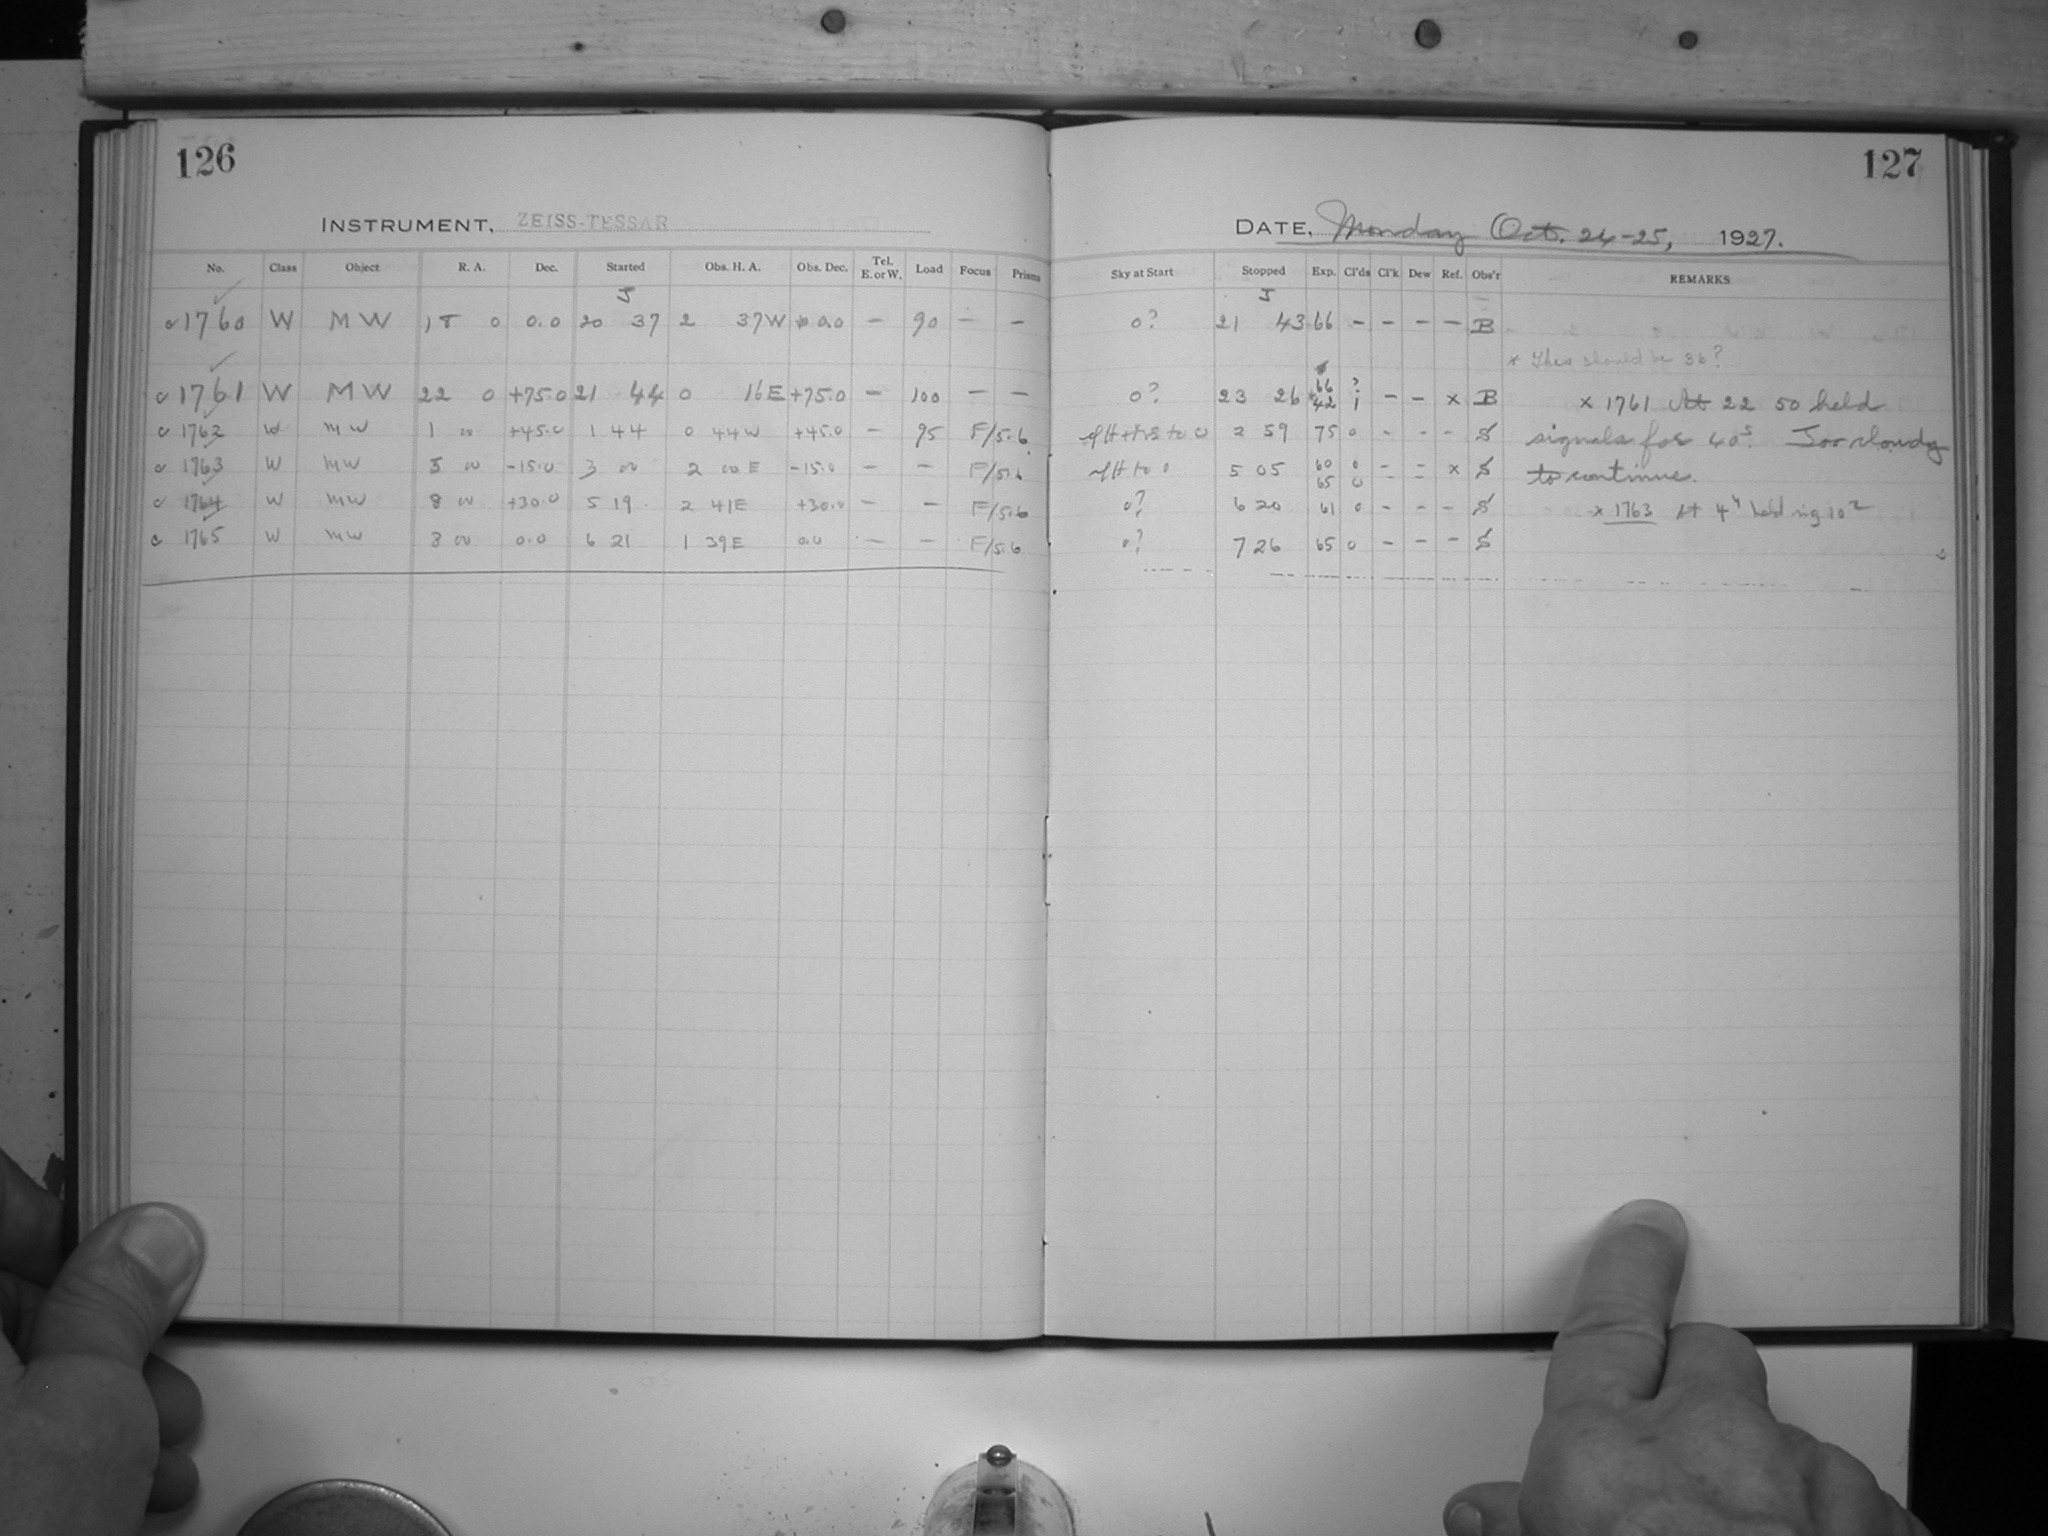 126
INSTRUMENT, ZEISS-TESSAR
No. Class Object R. A. Dec. Started Obs. H. A. Obs. Dec. Tel. E. or W. Load Focus Prisms
J
a 1760 W MW 18 0 0.0 20 37 2 37W 0.0 — 90 — —
a 1761 W MW 22 0 +75.0 21 44 0 16E +75.0 — 100 — —
a 1762 W MW 1 00 +45.0 1 44 0 44W +45.0 — 95 F/5.6
a 1763 W MW 5 00 -15.0 3 00 2 00 E -15.0 — — F/5.6
a 1764 W MW 8 00 +30.0 5 19 2 41E +30.0 — — F/5.6
a 1765 W MW 8 00 0.0 6 21 1 39E 0.0 — — F/5.6
127
DATE, Monday Oct. 24-25, 1927.
Sky at Start Stopped Exp. Cl'ds Cl'k Dew Ref. Obs'r REMARKS
J
0? 21 43 66 — — — — B
* This should be 36?
66 ?
0? 23 26 * 42 1 — — x B x 1761 At 22 50 held
to 0 2 59 75 0 - - - S signals for 40s. Too cloudy
to 0 5 05 60 0 - - x S to continue.
65 0 - -
0? 6 20 61 0 - - - S x 1763 At 4h held sig 10
0? 7 26 65 0 - - - S